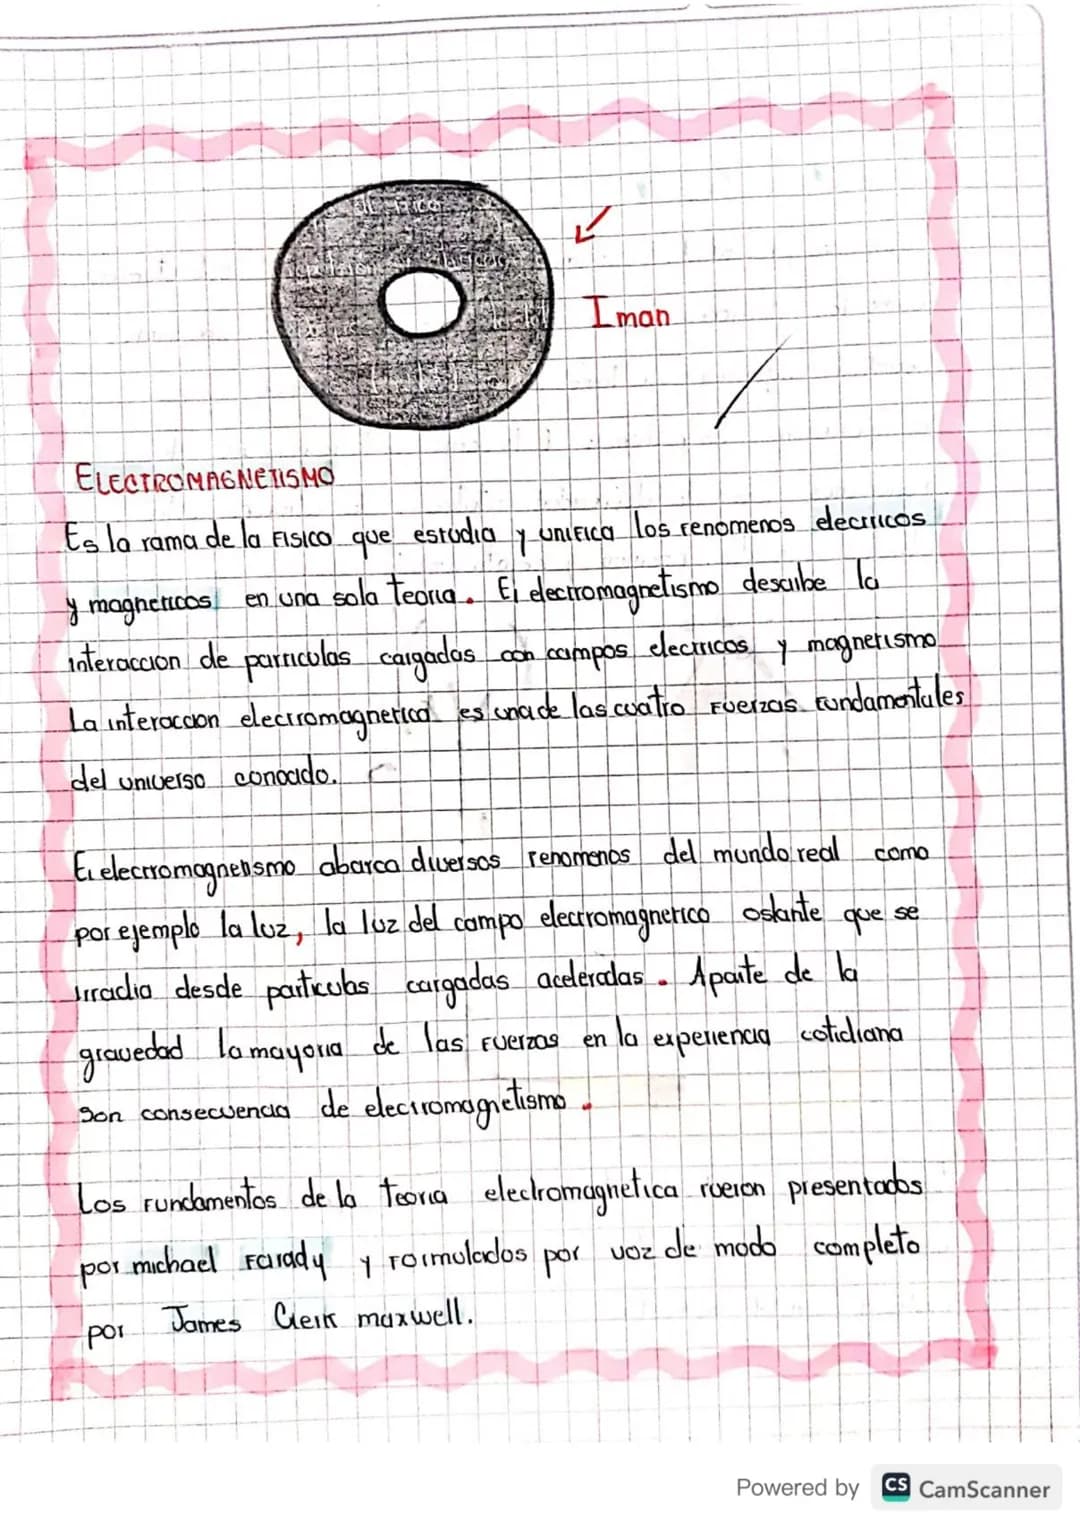 Iman
ELECTROMAGNETISMO
Es la rama de la FISICO que estudia y UNIFICA los fenomenos electricos
y magneticos en una sola teoria. El electromagnetismo describe la
interaccion de particulas cargadas con campos electricos y magnetismo
La interaccion electromagnetica es una de las cuatro FUERZAS fundamentales
del universo conocido.
El electromagnetismo abarca diversos fenomenos del mundo real como
por ejemplo la luz, la luz del campo electromagnetico oslante que se
irradia desde particulas cargadas aceleradas. Aparte de la
gravedad la mayoria de las fuerzas en la experiencia cotidiana
son consecuencia de electromagnetismo.
Los fundamentos de la teoria electromagnetica fueron presentados
por michael Farady y formulados por voz de modo completo
por James Clerk maxwell.
Powered by CS CamScanner